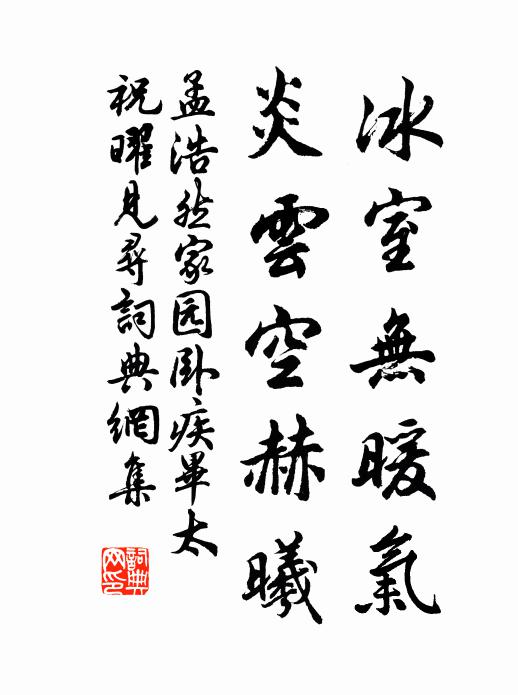 冰室無暖氣
炎雲空赫曦
孟浩然家园臥疾畢太
祝曜見尋詞典網集
詞典网印